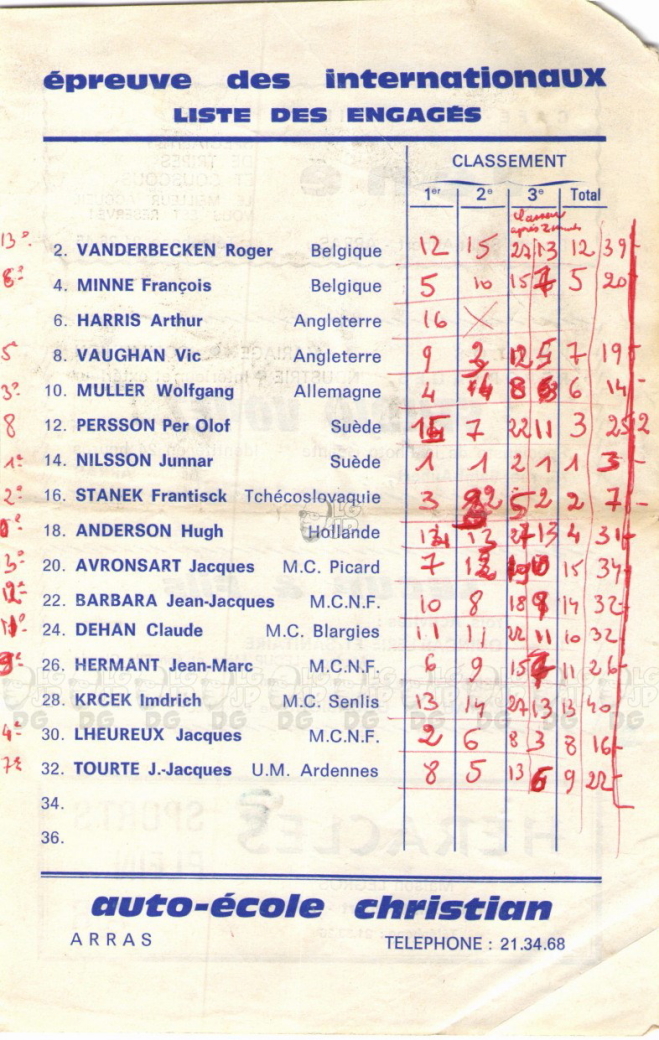 épreuve des internationaux
LISTE DES ENGAGÉS
CLASSEMENT
1er 2e 3e Total
classement après 2 manches
13e 2. VANDERBECKEN Roger Belgique 12 15 27 13 12 39
8e 4. MINNE François Belgique 5 10 15 7 5 20
6. HARRIS Arthur Angleterre 16 X
5e 8. VAUGHAN Vic Angleterre 9 3 12 5 7 19
3e 10. MULLER Wolfgang Allemagne 4 4 8 6 14
8 12. PERSSON Per Olof Suède 15 7 22 11 3 25
1e 14. NILSSON Junnar Suède 1 1 2 1 1 3
2e 16. STANEK Frantisck Tchécoslovaquie 3 2 5 2 2 7
18. ANDERSON Hugh Hollande 13 27 13 4 31
3e 20. AVRONSART Jacques M.C. Picard 7 12 19 10 15 34
12e 22. BARBARA Jean-Jacques M.C.N.F. 10 8 18 9 14 32
11e 24. DEHAN Claude M.C. Blargies 11 11 22 11 10 32
9e 26. HERMANT Jean-Marc M.C.N.F. 6 9 15 7 11 26
28. KRCEK Imdrich M.C. Senlis 13 14 27 13 13 40
4e 30. LHEUREUX Jacques M.C.N.F. 2 6 8 3 8 16
7e 32. TOURTE J.-Jacques U.M. Ardennes 8 5 13 6 9 22
34.
36.
auto-école christian
ARRAS TELEPHONE : 21.34.68